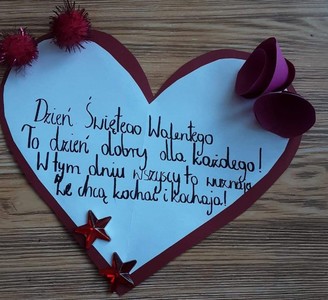 Dzień Świętego Walentego
To dzień dobry dla każdego!
W tym dniu wszyscy to wyznają
Że chcą kochać i kochają!